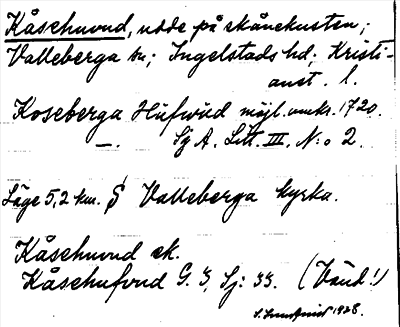 Kåsehuvud, udde på skånekusten;
Valleberga sn; Ingelstads hd; Kristi-
anst. l.
Koseberga Hufwud möjl. omkr. 1720.
—. Sj A. Litt. III. N:o 2.
Läge 5,2 km. S Valleberga kyrka.
Kåsehuvud ek.
Kåsehufvud G. 3, Sj: 33. (Vänd!)
1928.